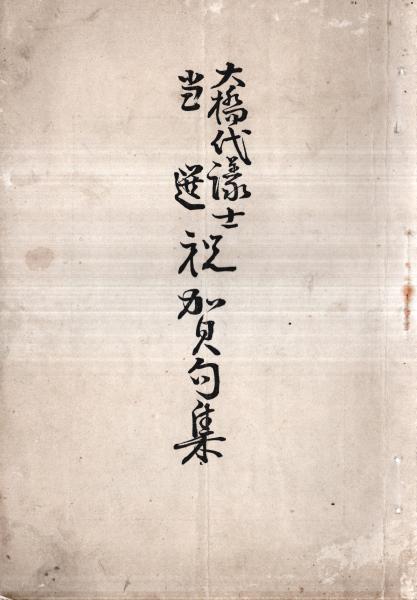 大橋代議士
当選祝賀句集